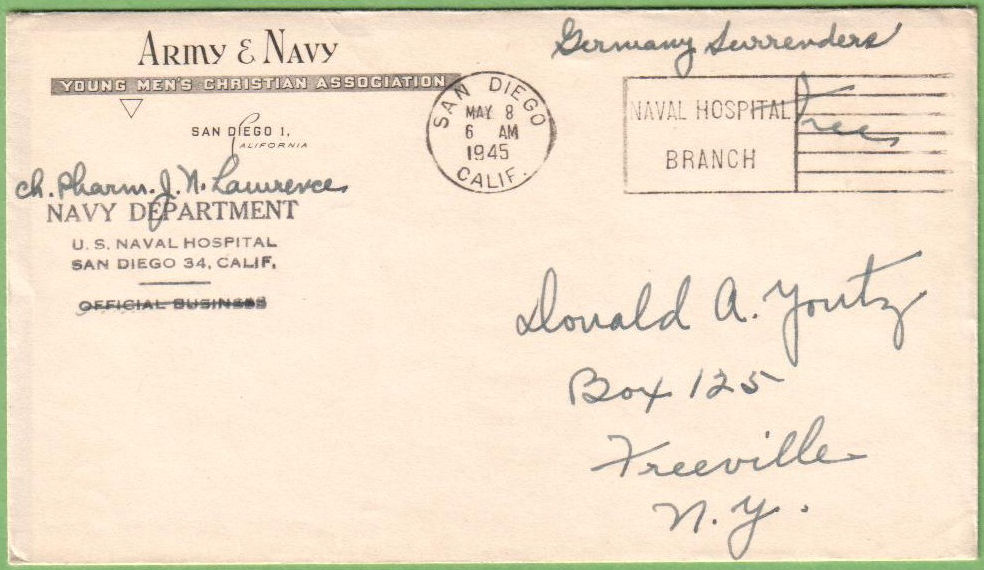 ARMY & NAVY
YOUNG MEN'S CHRISTIAN ASSOCIATION
SAN DIEGO 1,
CALIFORNIA
Ch. Pharm. J. N. Lawrence
NAVY DEPARTMENT
U. S. NAVAL HOSPITAL
SAN DIEGO 34, CALIF.
OFFICIAL BUSINESS
SAN DIEGO
MAY 8
6 AM
1945
CALIF.
Germany Surrenders
NAVAL HOSPITAL
BRANCH
Free
Donald A. Yontz
Box 125
Freeville
N. Y.